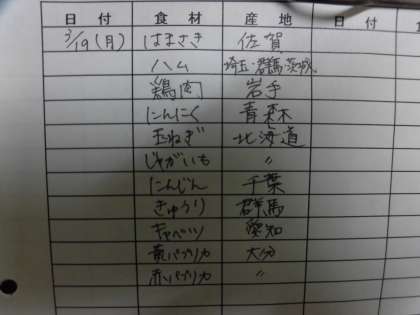 日付 食材 産地 日付 食
3/19(月) はまさき 佐賀
ハム 埼玉・群馬・茨城
鶏肉 岩手
にんにく 青森
玉ねぎ 北海道
じゃがいも 〃
にんじん 千葉
きゅうり 群馬
キャベツ 愛知
黄パプリカ 大分
赤パプリカ 〃